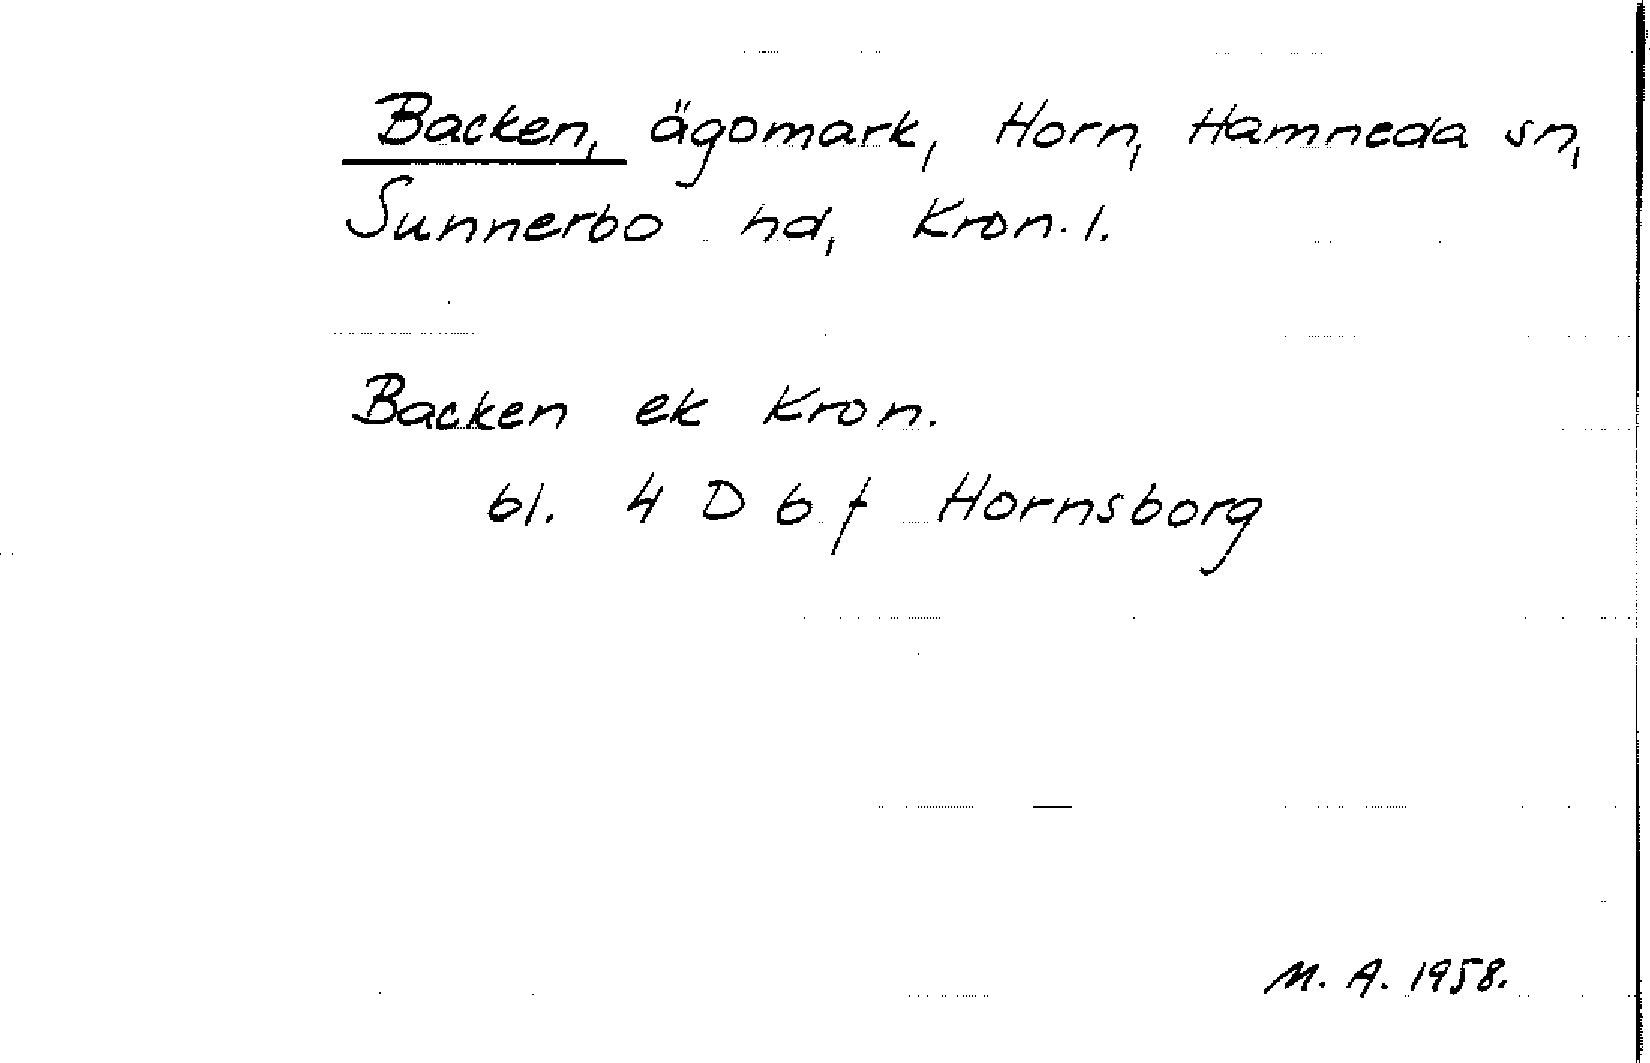 Backen, ägomark, Horn, Hamneda sn,
Sunnerbo hd, Kron. l.
Backen ek Kron.
bl. 4 D 6 f Hornsborg
M. A. 1958.